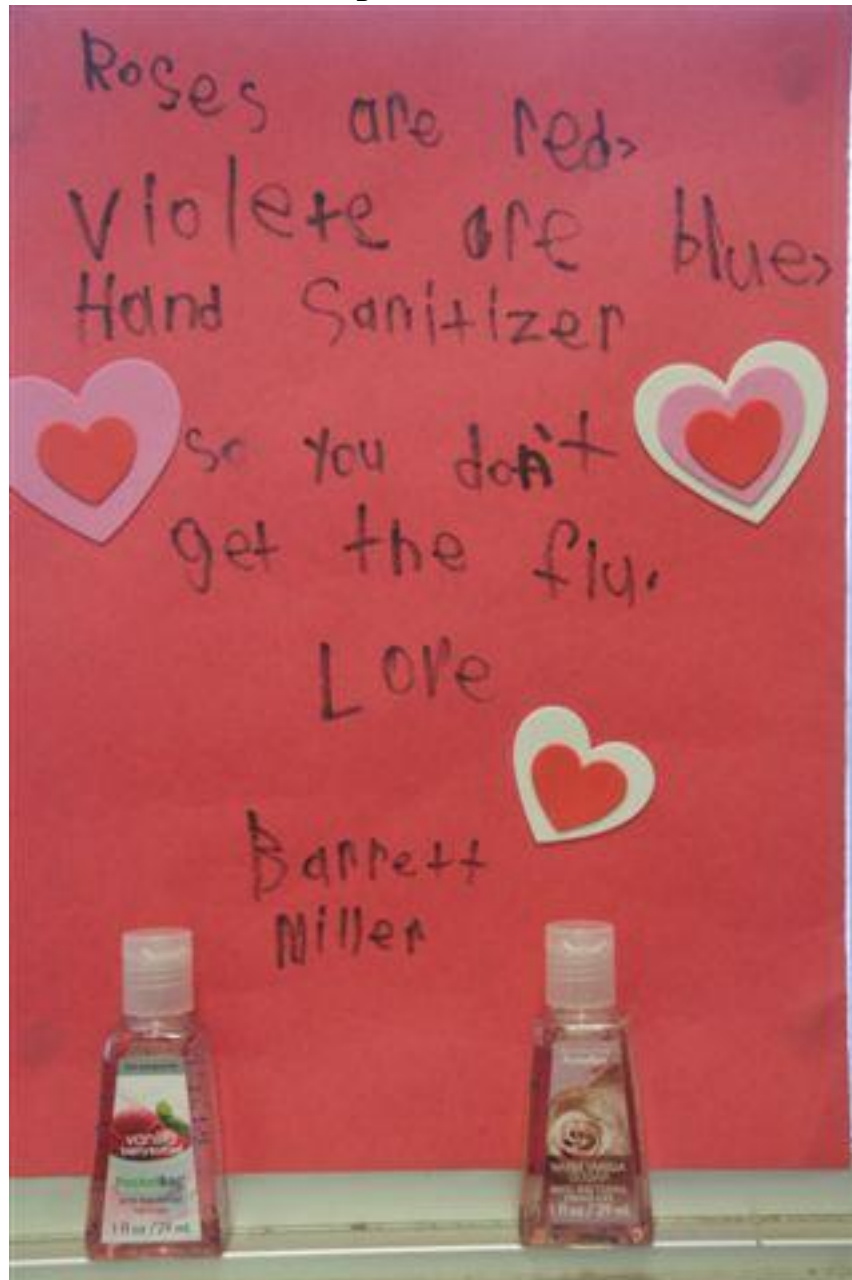 Roses are red,
Violete are blue,
Hand Sanitizer
so you don't
get the flu.
Love
Barrett
Miller
vanilla
berry
PocketBac
1 fl oz / 29 mL
WARM VANILLA
SUGAR
ANTI-BACTERIAL
1 fl oz / 29 mL